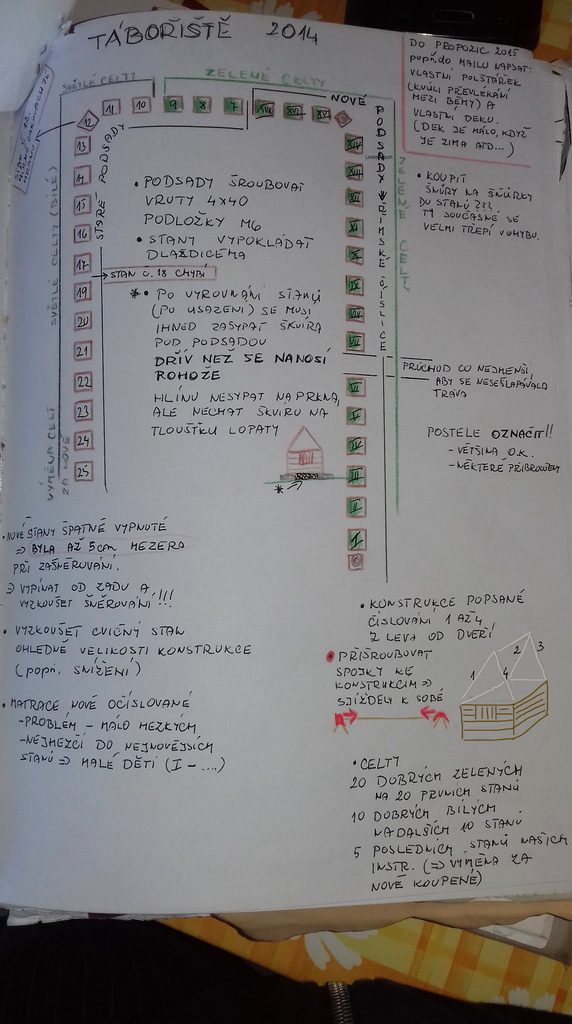 TÁBOŘIŠTĚ 2014
SVĚTLÉ CELTY
ZELENÉ CELTY
NOVÉ
PODSADY → ŘÍMSKÉ ČÍSLICE
ZELENÉ CELTY
DO PROPOZIC 2015
POPŘ. DO MAILU NAPSAT:
VLASTNÍ POLŠTÁŘEK
(KVŮLI PŘEVLÉKÁNÍ
MEZI BĚHY) A
VLASTNÍ DEKU.
(DEK JE MÁLO, KDYŽ
JE ZIMA ATD...)
12
11
10
9
8
7
XVII
XVI
XV
13
14
15
16
17
19
20
21
22
23
24
25
STARÉ PODSADY
SVĚTLÉ CELTY (BÍLÉ)
VÝMĚNA CELT
ZA NOVÉ
→ STAN Č. 18 CHYBÍ
• PODSADY ŠROUBOVAT
VRUTY 4x40
PODLOŽKY M6
• STANY VYPOKLÁDAT
DLAŽDICEMA
* • PO VYROVNÁNÍ STANŮ
(PO USAZENÍ) SE MUSÍ
IHNED ZASYPAT ŠKVÍRA
POD PODSADOU
DŘÍV NEŽ SE NANOSÍ
ROHOŽE
HLÍNU NESYPAT NA PRKNA,
ALE NECHAT ŠKVÍRU NA
TLOUŠŤKU LOPATY
*
• KOUPIT
ŠŇŮRY NA ŠŇŮRKY
DO STANŮ ???
TY SOUČASNÉ SE
VELMI TŘEPÍ V OHYBU.
PRŮCHOD CO NEJMENŠÍ,
ABY SE NESEŠLAPÁVALA
TRÁVA
POSTELE OZNAČIT!!
- VĚTŠINA O.K.
- NĚKTERÉ PŘIBROUSIT
VI
V
IV
III
II
I
• NOVÉ STANY ŠPATNĚ VYPNUTÉ
⇒ BYLA AŽ 5cm MEZERA
PŘI ZAŠNĚROVÁNÍ.
⇒ VYPÍNAT OD ZADU A
VYZKOUŠET ŠNĚROVÁNÍ!!!
• VYZKOUŠET CVIČNÝ STAN
OHLEDNĚ VELIKOSTI KONSTRUKCE
(POPŘ. SNÍŽENÍ)
• MATRACE NOVĚ OČÍSLOVANÉ
- PROBLÉM - MÁLO HEZKÝCH
- NEJHEZČÍ DO NEJNOVĚJŠÍCH
STANŮ ⇒ MALÉ DĚTI (I - ....)
• KONSTRUKCE POPSANÉ
ČÍSLOVÁNÍ 1 AŽ 4
Z LEVA OD DVEŘÍ
• PŘIŠROUBOVAT
SPOJKY KE
KONSTRUKCÍM ⇒
SJÍŽDĚLY K SOBĚ
1
2
3
4
• CELTY
20 DOBRÝCH ZELENÝCH
NA 20 PRVNÍCH STANŮ
10 DOBRÝCH BÍLÝCH
NA DALŠÍCH 10 STANŮ
5 POSLEDNÍCH STANŮ NAŠICH
INSTR. (⇒ VÝMĚNA ZA
NOVÉ KOUPENÉ)